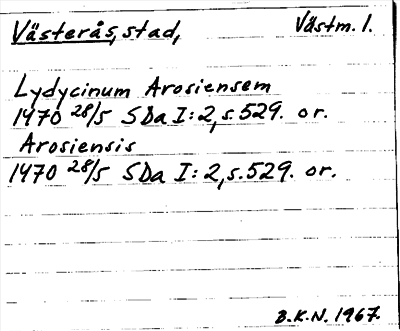 Västerås, stad, Västm. l.
Lydycinum Arosiensem
1470 28/5 SDa I:2, s.529. or.
Arosiensis
1470 28/5 SDa I:2, s.529. or.
B.K.N. 1967.